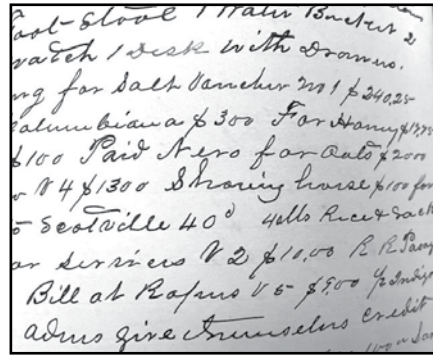 Foot-Stool 1 Water Bucket 2
watch 1 Desk with Drawers.
ng for Salt Voucher No 1 $240,25
Columbiana $300 For Harny
$100 Paid Nero for Oats $2000
V 4 $1300 Shoeing horse $100 for
to Scotville 40¢ 4 lbs Rice & Sack
or servises V 2 $10,00 R R Pass
Bill at Rofrus V 5 $9,00
adms give themselves credit